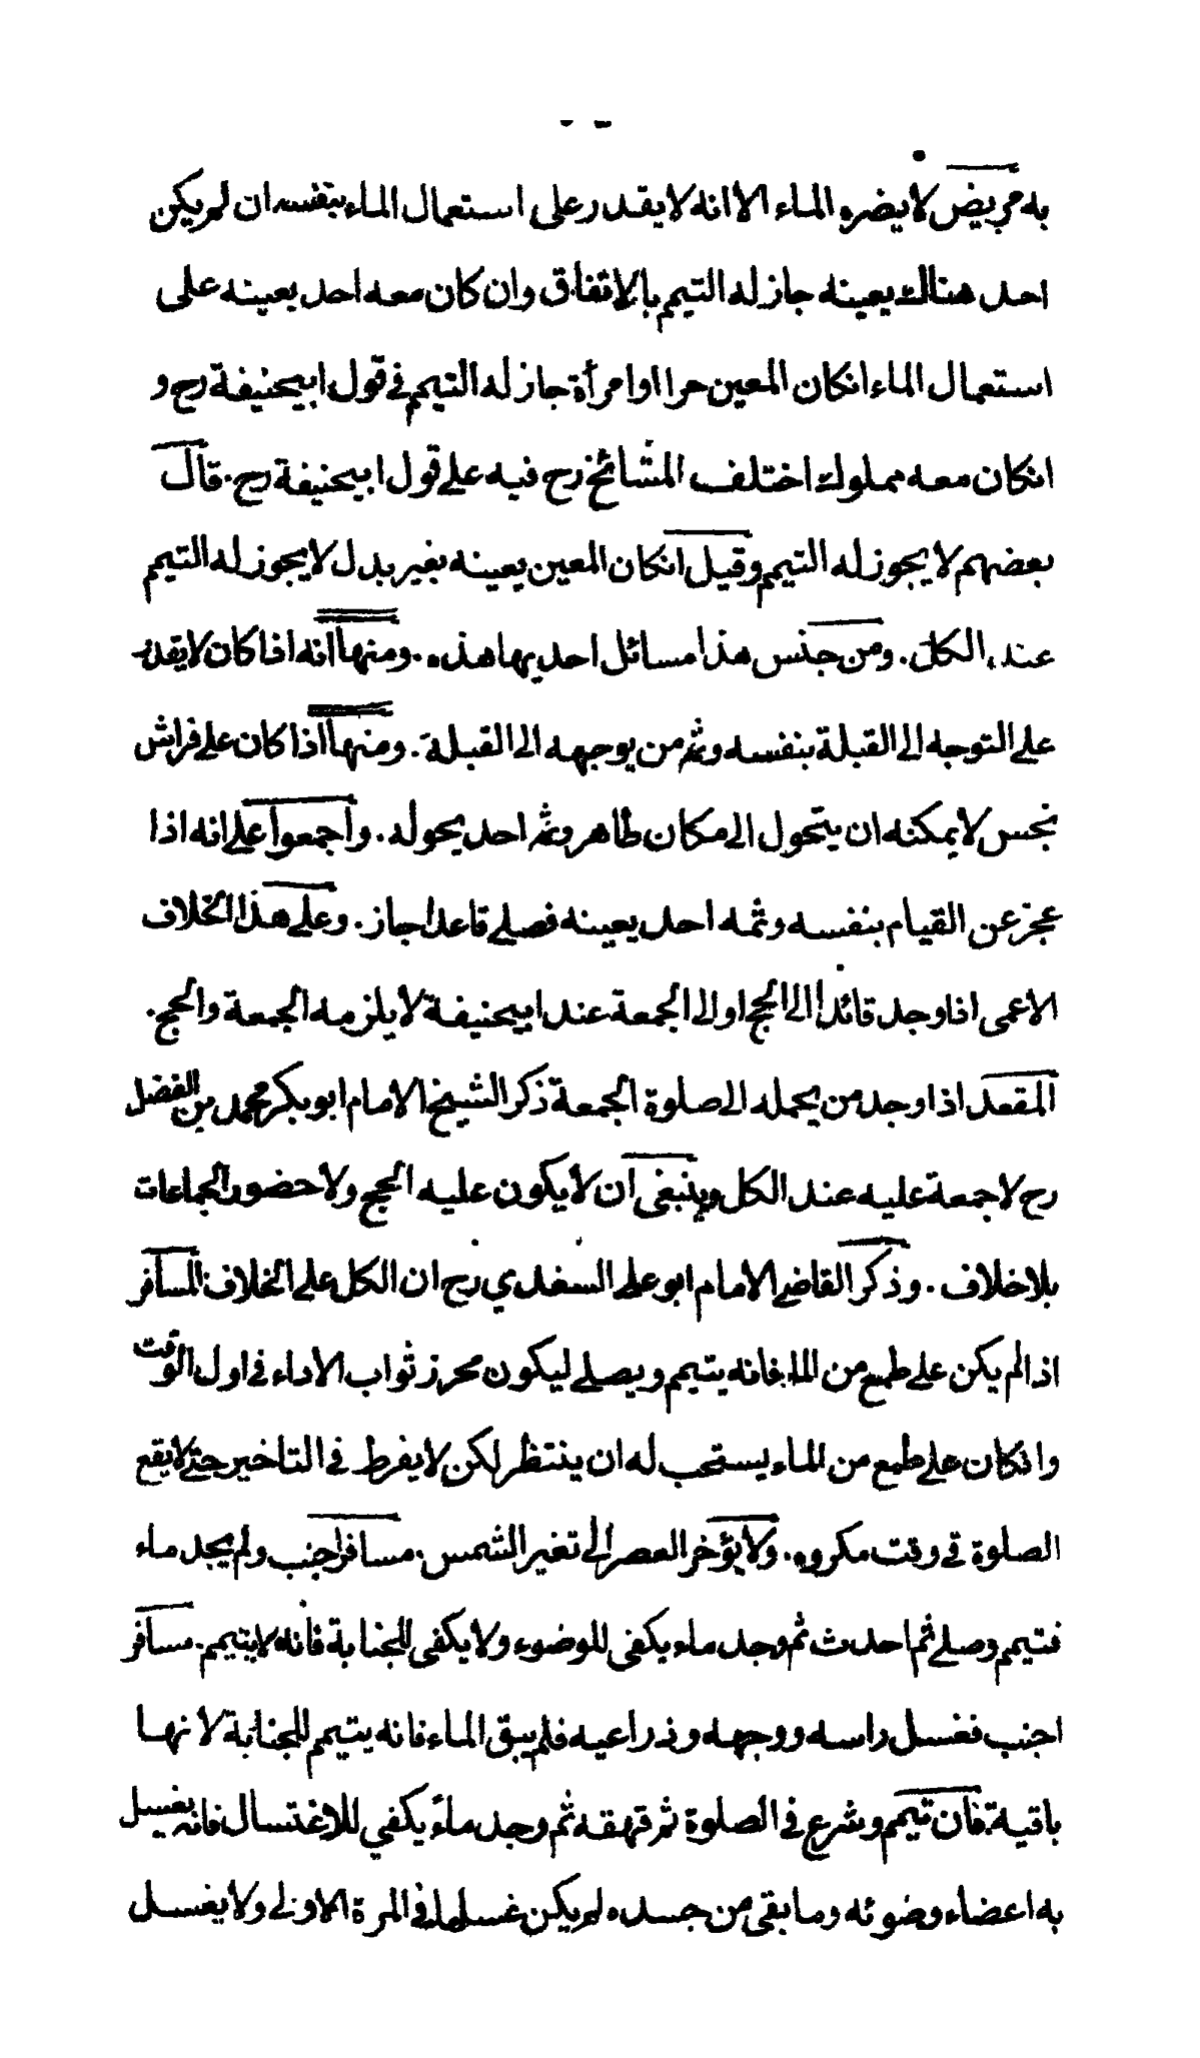 به مريض لا يضره الماء الا انه لا يقدر على استعمال الماء بنفسه ان لم يكن
احد هناك يعينه جاز له التيمم بالاتفاق وان كان معه احد يعينه على
استعمال الماء انكان المعين حرا او امرأة جاز له التيمم في قول ابيحنيفة رح و
انكان معه مملوك اختلف المشائخ رح فيه على قول ابيحنيفة رح. قال
بعضهم لا يجوز له التيمم وقيل انكان المعين يعينه بغير بدل لا يجوز له التيمم
عند الكل. ومن جنس هذا مسائل احديها هذه. ومنها انه اذا كان لا يقدر
على التوجه الى القبلة بنفسه وثم من يوجهه الى القبلة. ومنها اذا كان على فراش
نجس لا يمكنه ان يتحول الى مكان طاهر وثم احد يحوله. واجمعوا على انه اذا
عجز عن القيام بنفسه وثمه احد يعينه فصلى قاعدا جاز. وعلى هذا الخلاف
الاعمى اذا وجد قائدا الى الحج او الى الجمعة عند ابيحنيفة لا يلزمه الجمعة والحج.
المقعد اذا وجد من يحمله الى صلوة الجمعة ذكر الشيخ الامام ابو بكر محمد بن الفضل
رح لا جمعة عليه عند الكل وينبغى ان لا يكون عليه الحج ولا حضور الجماعات
بلا خلاف. وذكر القاضي الامام ابو على السغدي رح ان الكل على الخلاف. المسافر
اذا لم يكن على طمع من الماء فانه يتيمم ويصلى ليكون محرز ثواب الاداء في اول الوقت
وانكان على طمع من الماء يستحب له ان ينتظر لكن لا يفرط في التاخير حتى لا يقع
الصلوة في وقت مكروه. ولا يؤخر العصر الى تغير الشمس. مسافر اجنب ولم يجد ماء
فتيمم وصلى ثم احدث ثم وجد ماء يكفى للوضوء ولا يكفى للجنابة فانه لا يتيمم. مسافر
اجنب فغسل راسه ووجهه وذراعيه فلم يبق الماء فانه يتيمم للجنابة لانها
باقية. فان تيمم وشرع في الصلوة ثم قهقه ثم وجد ماء يكفي للاغتسال فانه يغسل
به اعضاء وضوئه وما بقى من جسده لم يكن غسلها في المرة الاولى ولا يغسل